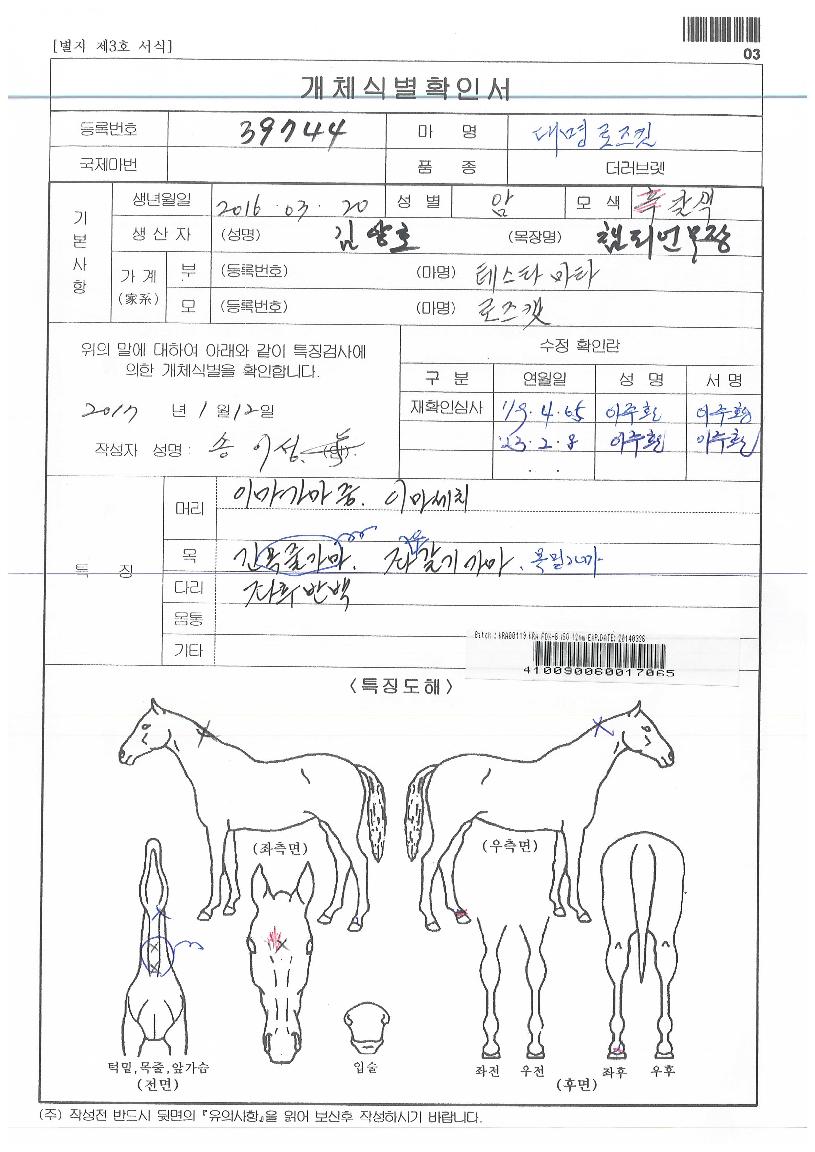 [별지 제3호 서식]
03
개체식별확인서
등록번호 39744 마 명 대명로즈킷
국제마번 품 종 더러브렛
기본사항
생년월일 2016 . 03 . 20 성 별 암 모 색 흑갈색
생 산 자 (성명) 김상호 (목장명) 챔피언목장
가 계 (家系) 부 (등록번호) (마명) 테스타마타
모 (등록번호) (마명) 로즈캣
위의 말에 대하여 아래와 같이 특징검사에
의한 개체식별을 확인합니다.
2017 년 1 월 12 일
작성자 성명 : 송이성
수정 확인란
구 분 연월일 성 명 서 명
재확인심사 이주환 이주환
'23. 2. 8 이주환 이주환
. .
특 징
머리 이마가마중. 이마세치
목 긴목줄가마. 좌갈기가마.
다리 좌후반백
몸통
기타
Batch : KRA00119 KRA FDX-B ISO 12mm EXP.DATE: 20140326
410090060017065
<특징도해>
(좌측면)
(우측면)
턱밑,목줄,앞가슴
(전면)
입술
좌전 우전
좌후 우후
(후면)
(주) 작성전 반드시 뒷면의 『유의사항』을 읽어 보신후 작성하시기 바랍니다.